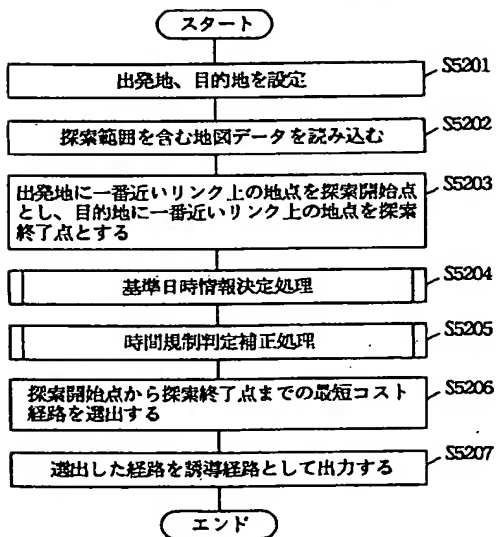 スタート
出発地、目的地を設定
S5201
探索範囲を含む地図データを読み込む
S5202
出発地に一番近いリンク上の地点を探索開始点
とし、目的地に一番近いリンク上の地点を探索
終了点とする
S5203
基準日時情報決定処理
S5204
時間規制判定補正処理
S5205
探索開始点から探索終了点までの最短コスト
経路を選出する
S5206
選出した経路を誘導経路として出力する
S5207
エンド